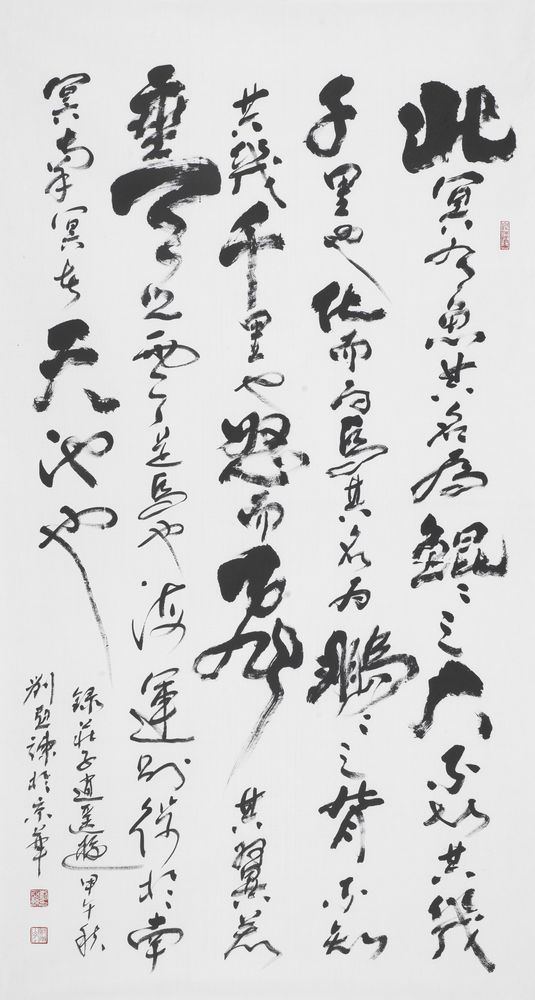 北冥有魚其名為鯤〻之大不知其幾
千里也化而為鳥其名為鵬〻之背不知
其幾千里也怒而飛其翼若
垂天之雲是鳥也海運則徙於南
冥南冥者天池也
錄莊子逍遙遊甲午秋
劉亞諫於京華